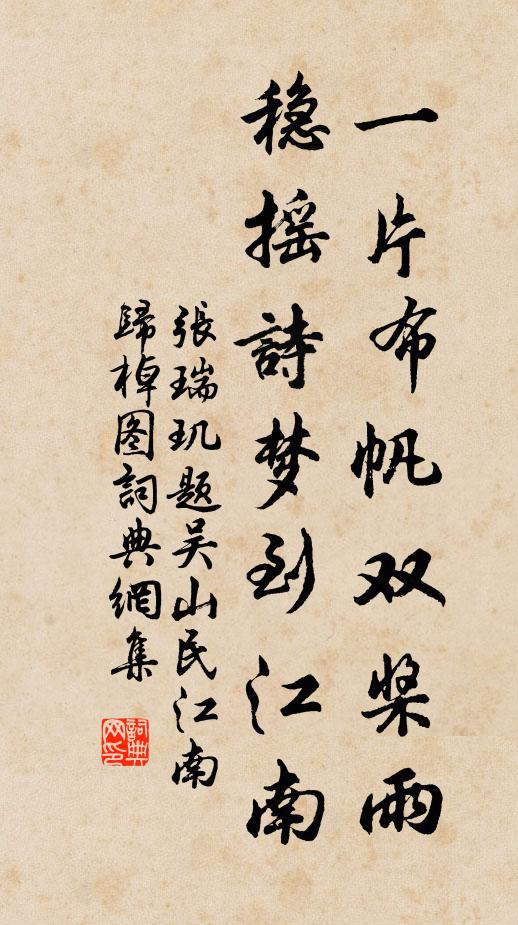 一片布帆双桨雨
稳摇詩梦到江南
張瑞玑题吴山民江南
歸棹图詞典網集
詞典
网印